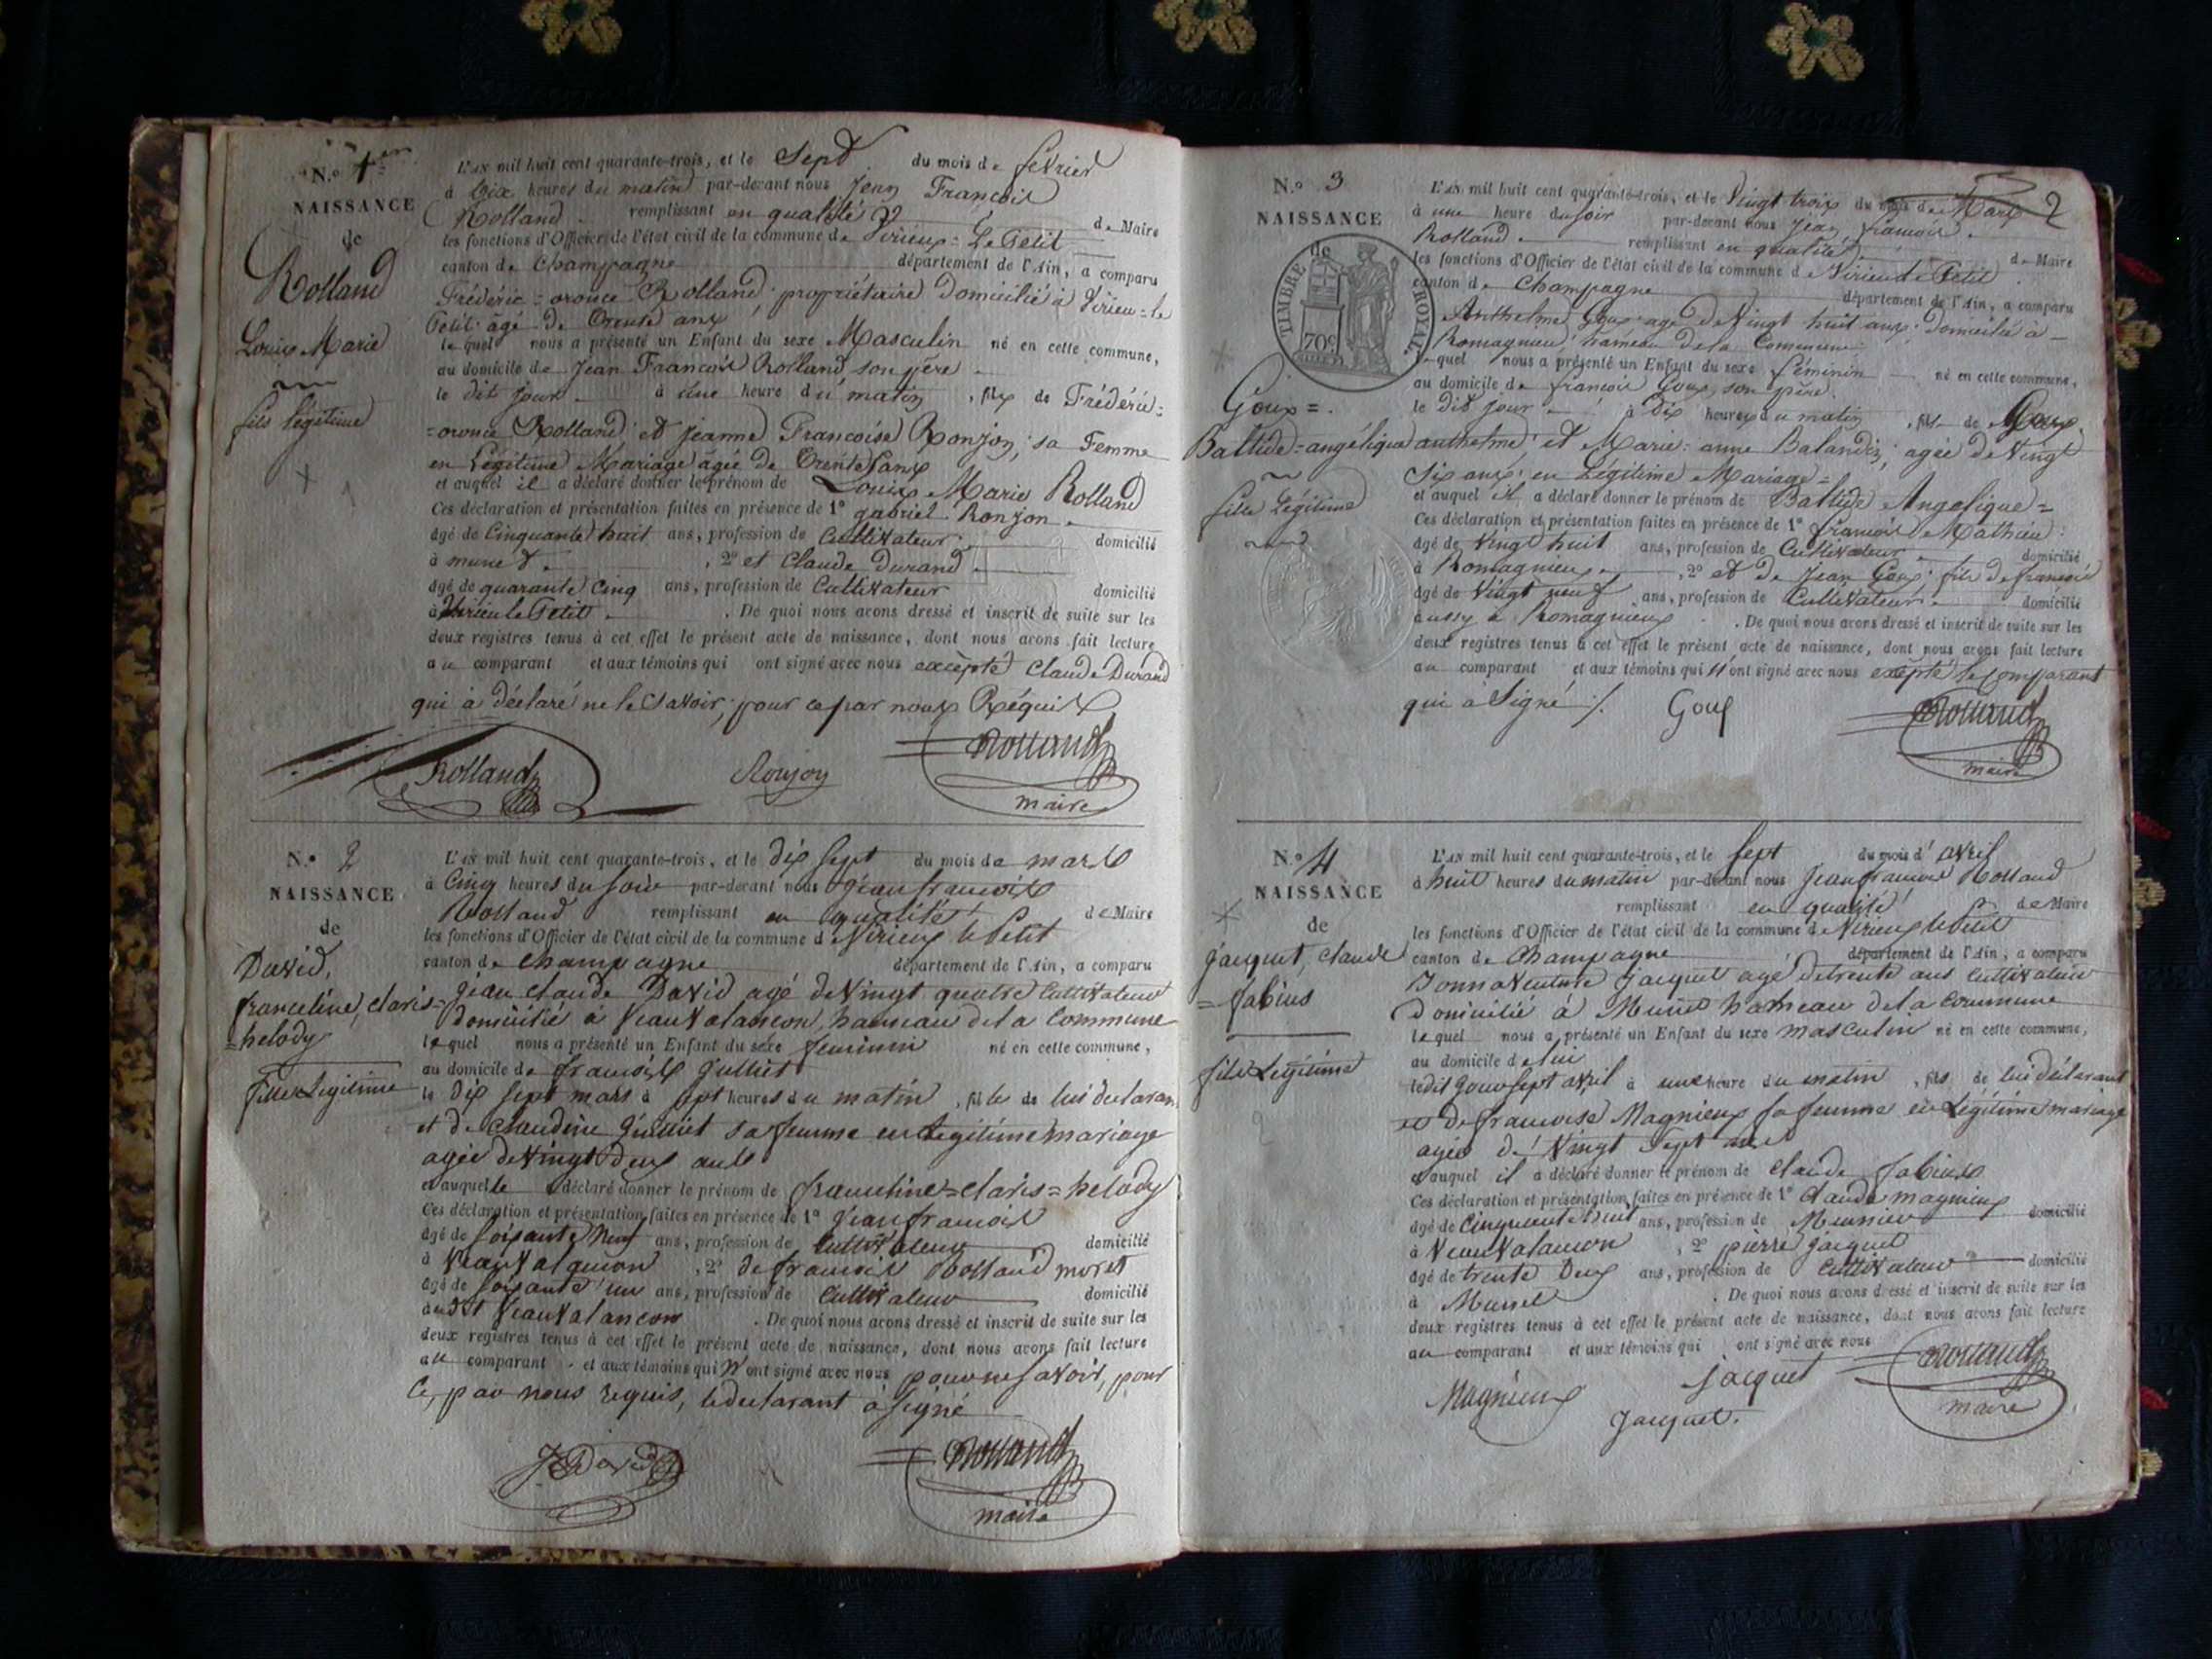 N.º 1er
NAISSANCE
de
Rolland
Louis Marie
fils légitime
L'AN mil huit cent quarante-trois, et le Sept du mois de février
à dix heures du matin par-devant nous Jean François
Rolland remplissant en qualité de Maire
les fonctions d'Officier de l'état civil de la commune de Virieux=Le Petit
canton de Champagne département de l'Ain, a comparu
Frédéric=oronce Rolland propriétaire domicilié à Virieu=le
Petit âgé de trente ans
lequel nous a présenté un Enfant du sexe Masculin né en cette commune,
au domicile de Jean François Rolland son père
le dit jour à une heure du matin, fils de Frédéric=
=oronce Rolland et jeanne Françoise Ronjon, sa Femme
en Légitime Mariage âgée de trente ans
et auquel il a déclaré donner le prénom de Louis Marie Rolland
Ces déclaration et présentation faites en présence de 1º gabriel Ronjon
âgé de Cinquante huit ans, profession de Cultivateur domicilié
à munet, 2º et Claude Durand
âgé de quarante Cinq ans, profession de Cultivateur domicilié
à Virieu le Petit. De quoi nous avons dressé et inscrit de suite sur les
deux registres tenus à cet effet le présent acte de naissance, dont nous avons fait lecture
au comparant et aux témoins qui ont signé avec nous excepté Claude Durand
qui à déclaré ne le Savoir, pour ce par nous Réquis
Rolland Ronjon Rolland
maire
N.º 2
NAISSANCE
de
David,
franceline, claris=
=helody
fille Légitime
L'AN mil huit cent quarante-trois, et le dix sept du mois de mars
à Cinq heures du soir par-devant nous jean françois
Rolland remplissant en qualité de Maire
les fonctions d'Officier de l'état civil de la commune d Virieux le Petit
canton de Champagne département de l'Ain, a comparu
jean claude David agé de Vingt quatre Cultivateur
domicilié a Veauvalancon, hammeau de la Commune
lequel nous a présenté un Enfant du sexe feminin né en cette commune,
au domicile de françois julliet
le Dix sept mars à sept heures du matin, fille de lui declarant
et de Claudine julliet sa femme en Légitime mariage
agée de Vingt deux ans
et auquelle déclaré donner le prénom de franceline=claris=helody
Ces déclaration et présentation faites en présence de 1º jean françois
âgé de soixante neuf ans, profession de Cultivateur domicilié
à Veauvalancon, 2º de françois Rolland moret
âgé de soixante un ans, profession de Cultivateur domicilié
audit Veauvalancon. De quoi nous avons dressé et inscrit de suite sur les
deux registres tenus à cet effet le présent acte de naissance, dont nous avons fait lecture
au comparant et aux témoins qui N'ont signé avec nous pour ne savoir, pour
Ce, par nous requis, le declarant à signé
David Rolland
maire
2
N.º 3
NAISSANCE
de
TIMBRE ROYAL.
70c
Goux=
Baltide=angélique
fille Légitime
L'AN mil huit cent quarante-trois, et le Vingt trois du mois de Mars
à une heure du soir par-devant nous Jean françois
Rolland remplissant en qualité de Maire
les fonctions d'Officier de l'état civil de la commune d Virieu le Petit
canton de Champagne département de l'Ain, a comparu
Anthelme Goux agé de Vingt huit ans, domicilié à
Romagnieu hameau de la Commune
lequel nous a présenté un Enfant du sexe féminin né en cette commune,
au domicile de françois Goux, son père
le dit jour à dix heures du matin, fille de Goux
anthelme et Marie=anne Balandin, agée de Vingt
Six ans en Légitime Mariage=
et auquel il a déclaré donner le prénom de Baltide Angelique=
Ces déclaration et présentation faites en présence de 1º françois Mathieu
âgé de Vingt huit ans, profession de Cultivateur domicilié
à Romagnieu, 2º et de Jean Goux fils de françois
âgé de Vingt neuf ans, profession de Cultivateur domicilié
aussy à Romagnieux. De quoi nous avons dressé et inscrit de suite sur les
deux registres tenus à cet effet le présent acte de naissance, dont nous avons fait lecture
au comparant et aux témoins qui N'ont signé avec nous excepté le comparant
qui à Signé ./. Goux Rolland
maire
N.º 4
NAISSANCE
de
jacquet, Claude
=fabius
fils Légitime
L'AN mil huit cent quarante-trois, et le sept du mois d'avril
à huit heures du matin par-devant nous jean françois Rolland
remplissant en qualité de Maire
les fonctions d'Officier de l'état civil de la commune de Virieux le Petit
canton de Champagne département de l'Ain, a comparu
Bonnaventure jacquet agé de trente ans Cultivateur
Domicilié à Munet hameau de la Commune
lequel nous a présenté un Enfant du sexe masculin né en cette commune,
au domicile de lui
ledit jour sept avril à une heure du matin, fils de lui déclarant
et de françoise Magnieux sa femme en Légitime mariage
agée de Vingt sept ans
et auquel il a déclaré donner le prénom de Claude fabius
Ces déclaration et présentation faites en présence de 1º Claude magnieux
âgé de Cinquante huit ans, profession de Meunier domicilié
à Veauvalancon, 2º pierre jacquet
âgé de trente Deux ans, profession de Cultivateur domicilié
à Munet. De quoi nous avons dressé et inscrit de suite sur les
deux registres tenus à cet effet le présent acte de naissance, dont nous avons fait lecture
au comparant et aux témoins qui ont signé avec nous
Magnieux jacquet Rolland
Jacquet. maire